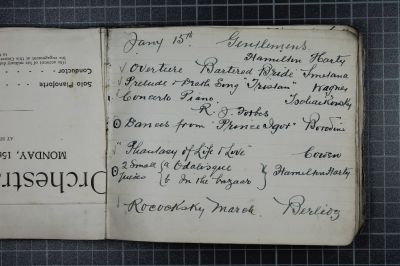 Jany 15th. Gentlemens
Hamilton Harty
√ Overture "Bartered Bride" Smetana
√ Prelude & Death Song "Tristan" Wagner
√ Concerto Piano. Tschaikowsky
R. J. Forbes
Dances from "Prince Igor" Borodin
√ "Phantasy of Life & Love" Cowen
2 Small { a Odalisque } Hamilton Harty
pieces { b In the bazaar }
√ Rococksky March. Berlioz
Orchestra
MONDAY, 15
Solo Pianoforte
Conductor